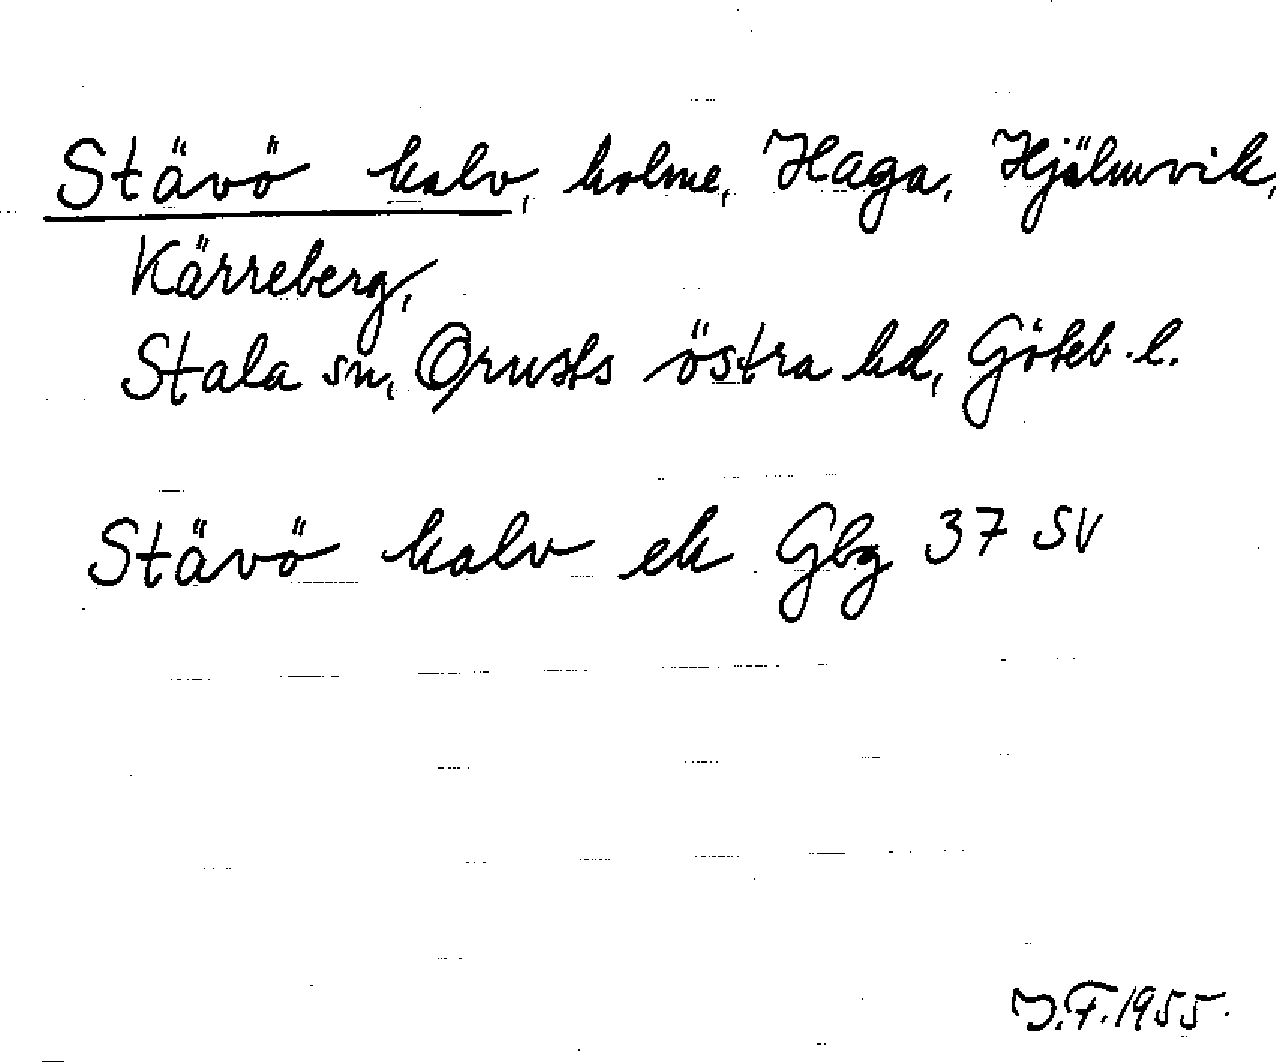 Stävö kalv, holme, Haga, Hjälmvik,
Kärreberg,
Stala sn, Orusts östra hd, Göteb. l.
Stävö kalv ek Gbg 37 SV
J.F. 1955.